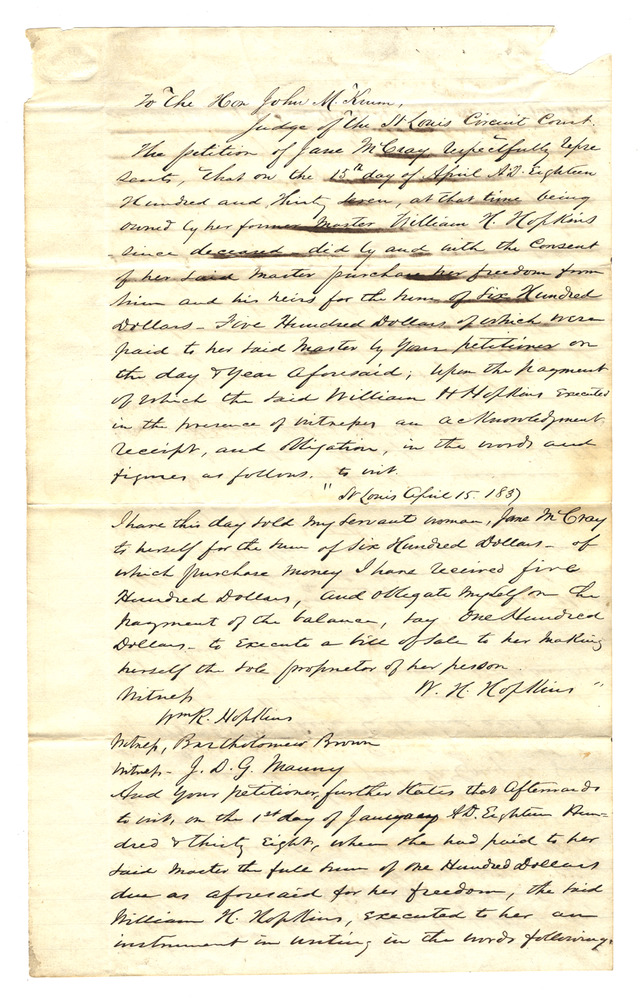 To The Hon John M. Krum,
Judge of the St Louis Circuit Court.
The petition of Jane McCray respectfully repre
sents, that on the 15th day of April A.D. Eighteen
Hundred and Thirty seven, at that time being
owned by her former Master William H. Hopkins
since deceased did by and with the Consent
of her said Master purchase her freedom from
him and his heirs for the sum of Six Hundred
Dollars – Five Hundred Dollars of which were
paid to her said Master by your petitioner on
the day & year aforesaid; upon the payment
of which the said William H Hopkins executed
in the presence of witnesses an acknowledgment,
receipt, and obligation, in the words and
figures as follows. to wit.
"St Louis April 15. 1837
I have this day sold my servant woman, Jane McCray
to herself for the sum of six Hundred Dollars – of
which purchase money I have received five
Hundred Dollars, and obligate myself on the
payment of the balance, say One Hundred
Dollars – to execute a bill of sale to her making
herself the sole proprietor of her person.
Witness W. H. Hopkins"
Wm R. Hopkins
Witness, Bartholomew Brown
Witness – J. D. G. Maury
And your petitioner, further states that afterwards
to wit, on the 1st day of January A.D. Eighteen Hun–
dred & thirty Eight, when she had paid to her
said Master the full sum of one Hundred Dollars
due as aforesaid for her freedom, the said
William H. Hopkins, executed to her an
instrument in writing in the words following.